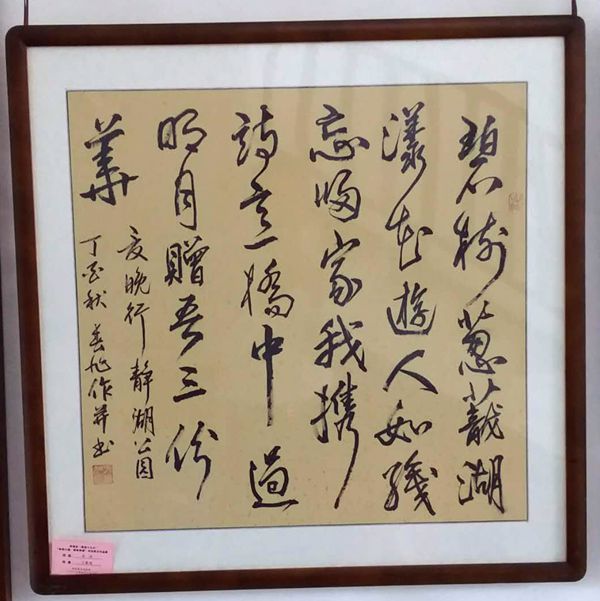 碧樹蔥蘢湖
漾花遊人如織
忘歸家我攜
詩意橋中過
明月贈吾三份
華
夏晚行靜湖公園
丁酉秋 作并书